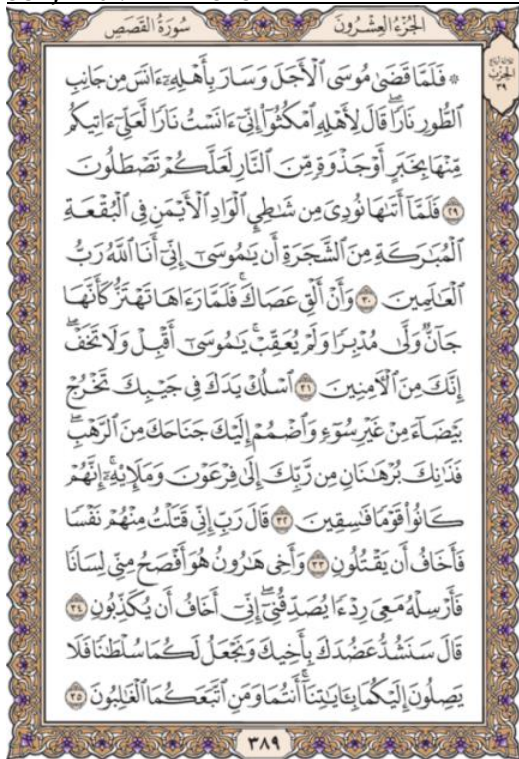 الجُزْءُ العِشْرُونَ سُورَةُ القَصَصِ
الحِزْب
٣٩
۞ فَلَمَّا قَضَىٰ مُوسَى ٱلْأَجَلَ وَسَارَ بِأَهْلِهِۦٓ ءَانَسَ مِن جَانِبِ
ٱلطُّورِ نَارًاۖ قَالَ لِأَهْلِهِ ٱمْكُثُوٓا۟ إِنِّىٓ ءَانَسْتُ نَارًا لَّعَلِّىٓ ءَاتِيكُم
مِّنْهَا بِخَبَرٍ أَوْ جَذْوَةٍ مِّنَ ٱلنَّارِ لَعَلَّكُمْ تَصْطَلُونَ
٢٩ فَلَمَّآ أَتَىٰهَا نُودِىَ مِن شَٰطِئِ ٱلْوَادِ ٱلْأَيْمَنِ فِى ٱلْبُقْعَةِ
ٱلْمُبَٰرَكَةِ مِنَ ٱلشَّجَرَةِ أَن يَٰمُوسَىٰٓ إِنِّىٓ أَنَا ٱللَّهُ رَبُّ
ٱلْعَٰلَمِينَ ٣٠ وَأَنْ أَلْقِ عَصَاكَۖ فَلَمَّا رَءَاهَا تَهْتَزُّ كَأَنَّهَا
جَآنٌّ وَلَّىٰ مُدْبِرًا وَلَمْ يُعَقِّبْۚ يَٰمُوسَىٰٓ أَقْبِلْ وَلَا تَخَفْۖ
إِنَّكَ مِنَ ٱلْءَامِنِينَ ٣١ ٱسْلُكْ يَدَكَ فِى جَيْبِكَ تَخْرُجْ
بَيْضَآءَ مِنْ غَيْرِ سُوٓءٍ وَٱضْمُمْ إِلَيْكَ جَنَاحَكَ مِنَ ٱلرَّهْبِۖ
فَذَٰنِكَ بُرْهَٰنَانِ مِن رَّبِّكَ إِلَىٰ فِرْعَوْنَ وَمَلَإِي۟هِۦٓۚ إِنَّهُمْ
كَانُوا۟ قَوْمًا فَٰسِقِينَ ٣٢ قَالَ رَبِّ إِنِّى قَتَلْتُ مِنْهُمْ نَفْسًا
فَأَخَافُ أَن يَقْتُلُونِ ٣٣ وَأَخِى هَٰرُونُ هُوَ أَفْصَحُ مِنِّى لِسَانًا
فَأَرْسِلْهُ مَعِىَ رِدْءًا يُصَدِّقُنِىٓۖ إِنِّىٓ أَخَافُ أَن يُكَذِّبُونِ ٣٤
قَالَ سَنَشُدُّ عَضُدَكَ بِأَخِيكَ وَنَجْعَلُ لَكُمَا سُلْطَٰنًا فَلَا
يَصِلُونَ إِلَيْكُمَا بِـَٔايَٰتِنَآۚ أَنتُمَا وَمَنِ ٱتَّبَعَكُمَا ٱلْغَٰلِبُونَ ٣٥
٣٨٩